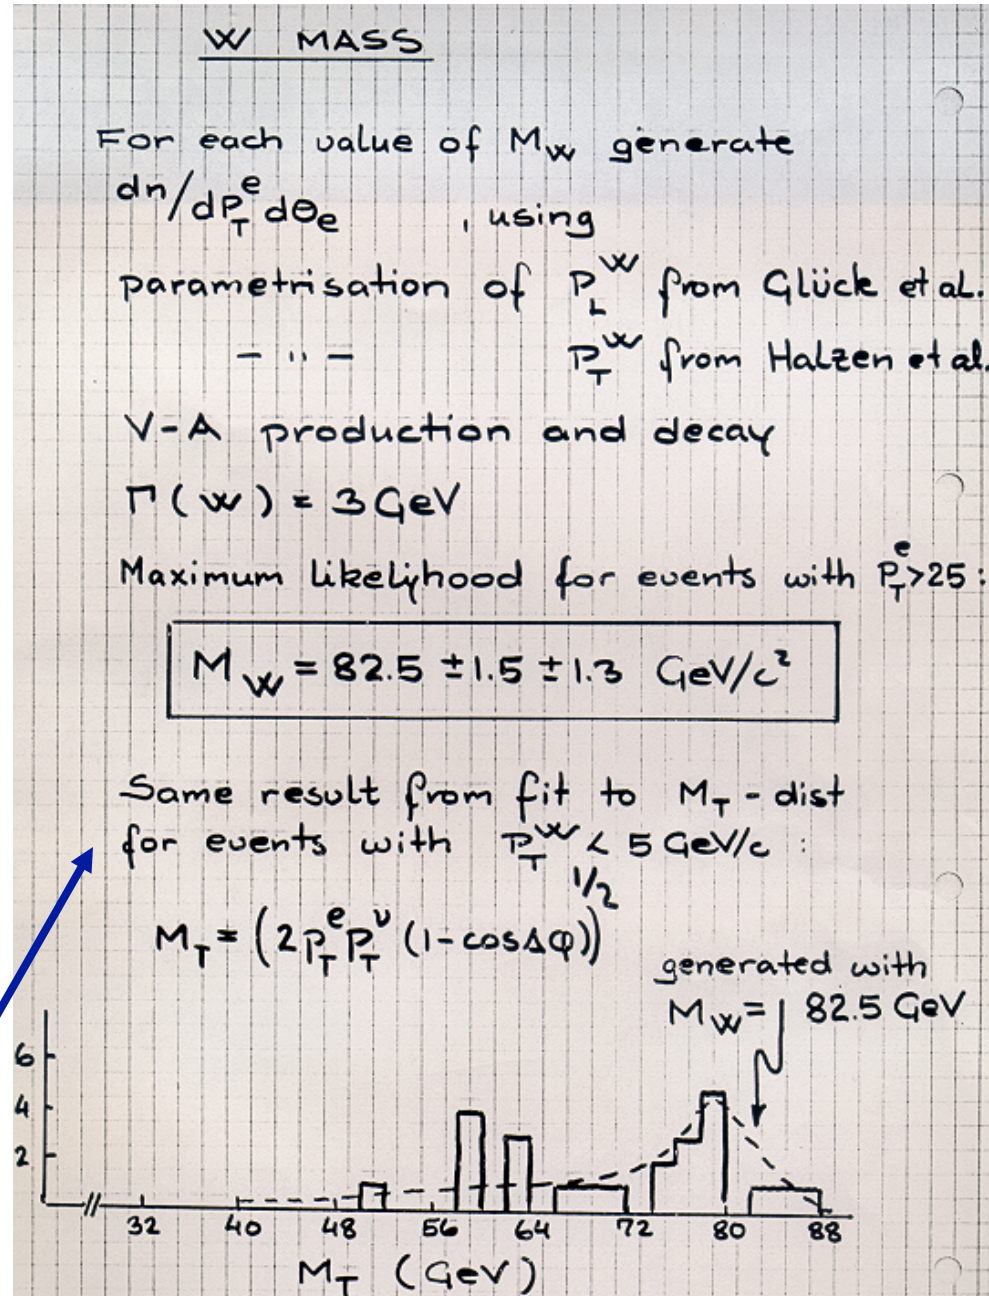 W MASS
For each value of M_W generate
dn/dP_T^e dθ_e , using
parametrisation of P_L^W from Glück et al.
— " — P_T^W from Halzen et al.
V-A production and decay
Γ(W) = 3 GeV
Maximum likelyhood for events with P_T^e>25:
M_W = 82.5 ±1.5 ±1.3 GeV/c²
Same result from fit to M_T - dist
for events with P_T^W < 5 GeV/c :
M_T = (2P_T^e P_T^ν (1-cosΔφ))^1/2
generated with
M_W = 82.5 GeV
6
4
2
32 40 48 56 64 72 80 88
M_T (GeV)